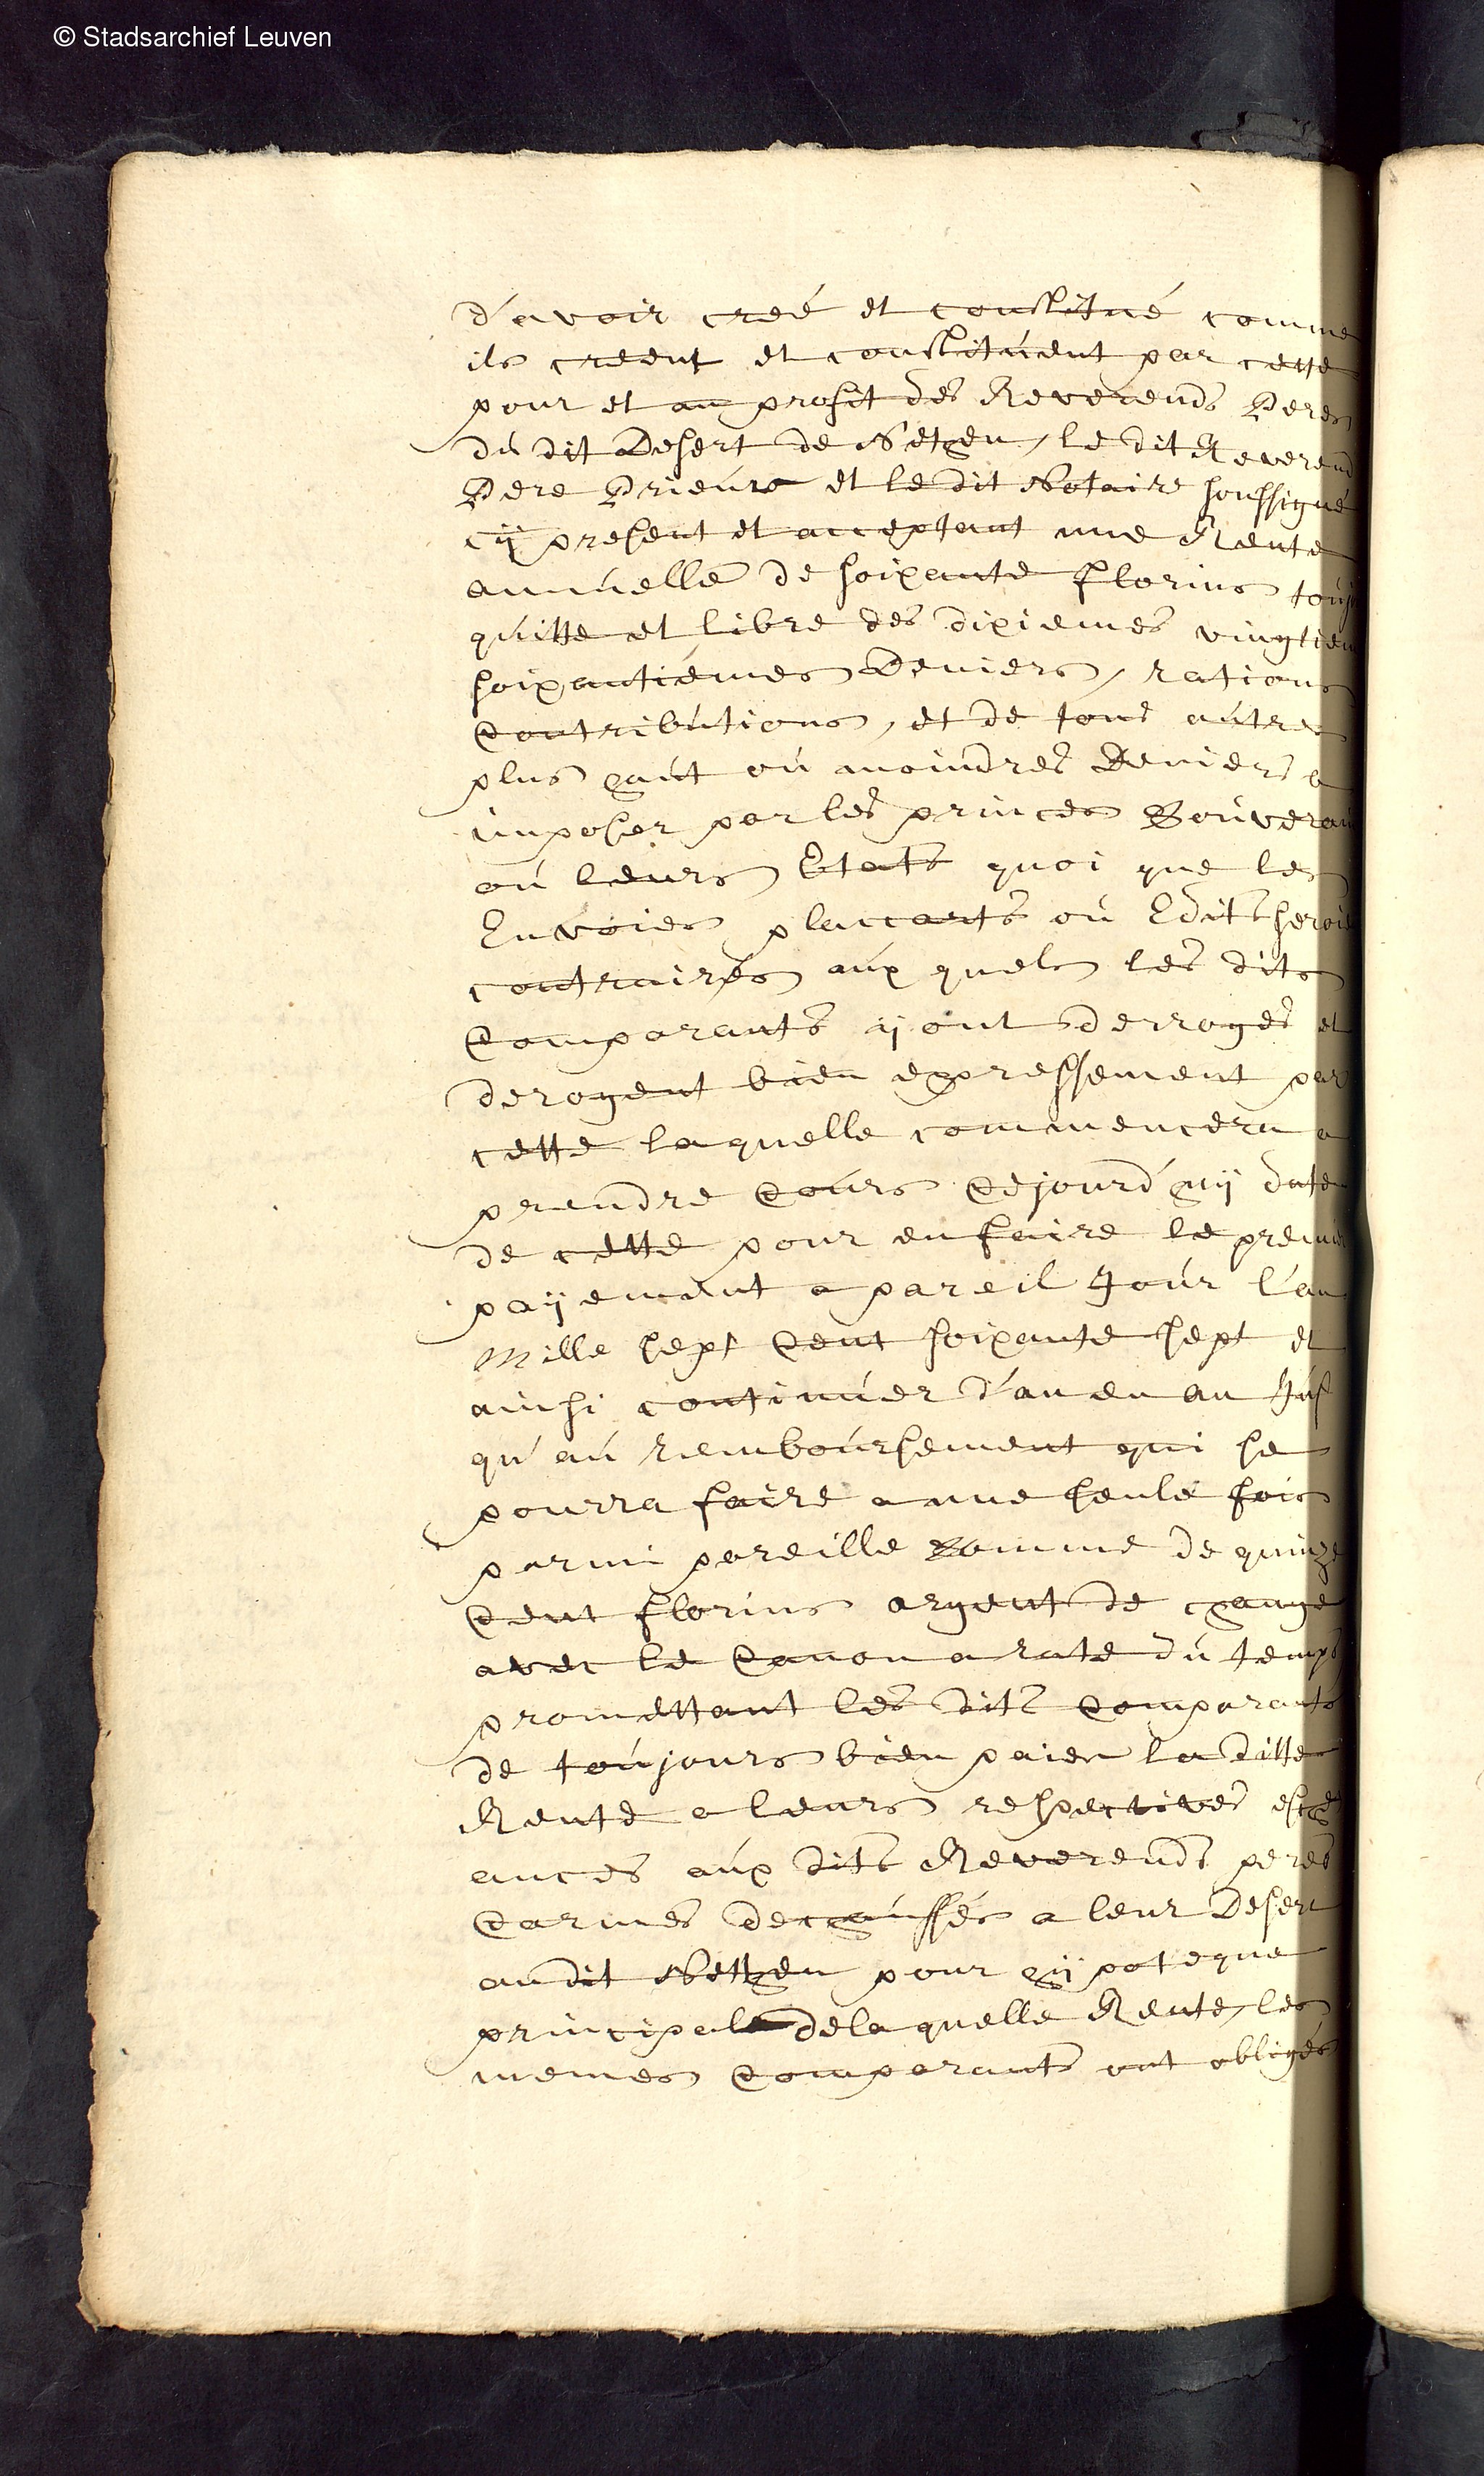 © Stadsarchief Leuven
d'avoir creé et constitué comme
ils creent et constituent par cette
pour et au profit des Reverends Peres
du dit Desert de Nethen, le dit Reverend
Pere Prieure et le dit Notaire soussigné
cÿ present et acceptant une Rente
annuelle de soixante florins
quitte et libre des dixiemes vingtiem
soixantiemes Deniers, rations
Contributions, et de tous autres
plus haut ou moindres Deniers a
imposer par les princes Souverain
ou leurs Etats quoi que les
Envoies placcarts ou Edits
contraires aux quels les dits
Comparants ÿ ont derroges et
derogent bien expressement par
cette laquelle commencera a
prendre Cours Cejourd'huÿ date
de cette pour en faire le premier
paÿement a pareil Jour l'an
Mille sept Cent soixante sept et
ainsi continuer d'an en an Jus
qu'au remboursement qui se
pourra faire a une seule fois
parmi pareille Somme de quinze
Cent florins argent de change
avec le Canon a rate du temps
promettant les dits Comparants
de toujours bien paier la ditte
Rente a leurs respectives esche
ances aux dits Reverends peres
Carmes dechaussés a leur Desert
audit Nethen pour hÿpoteque
principale de la quelle Rente, les
memes Comparants ont obligés